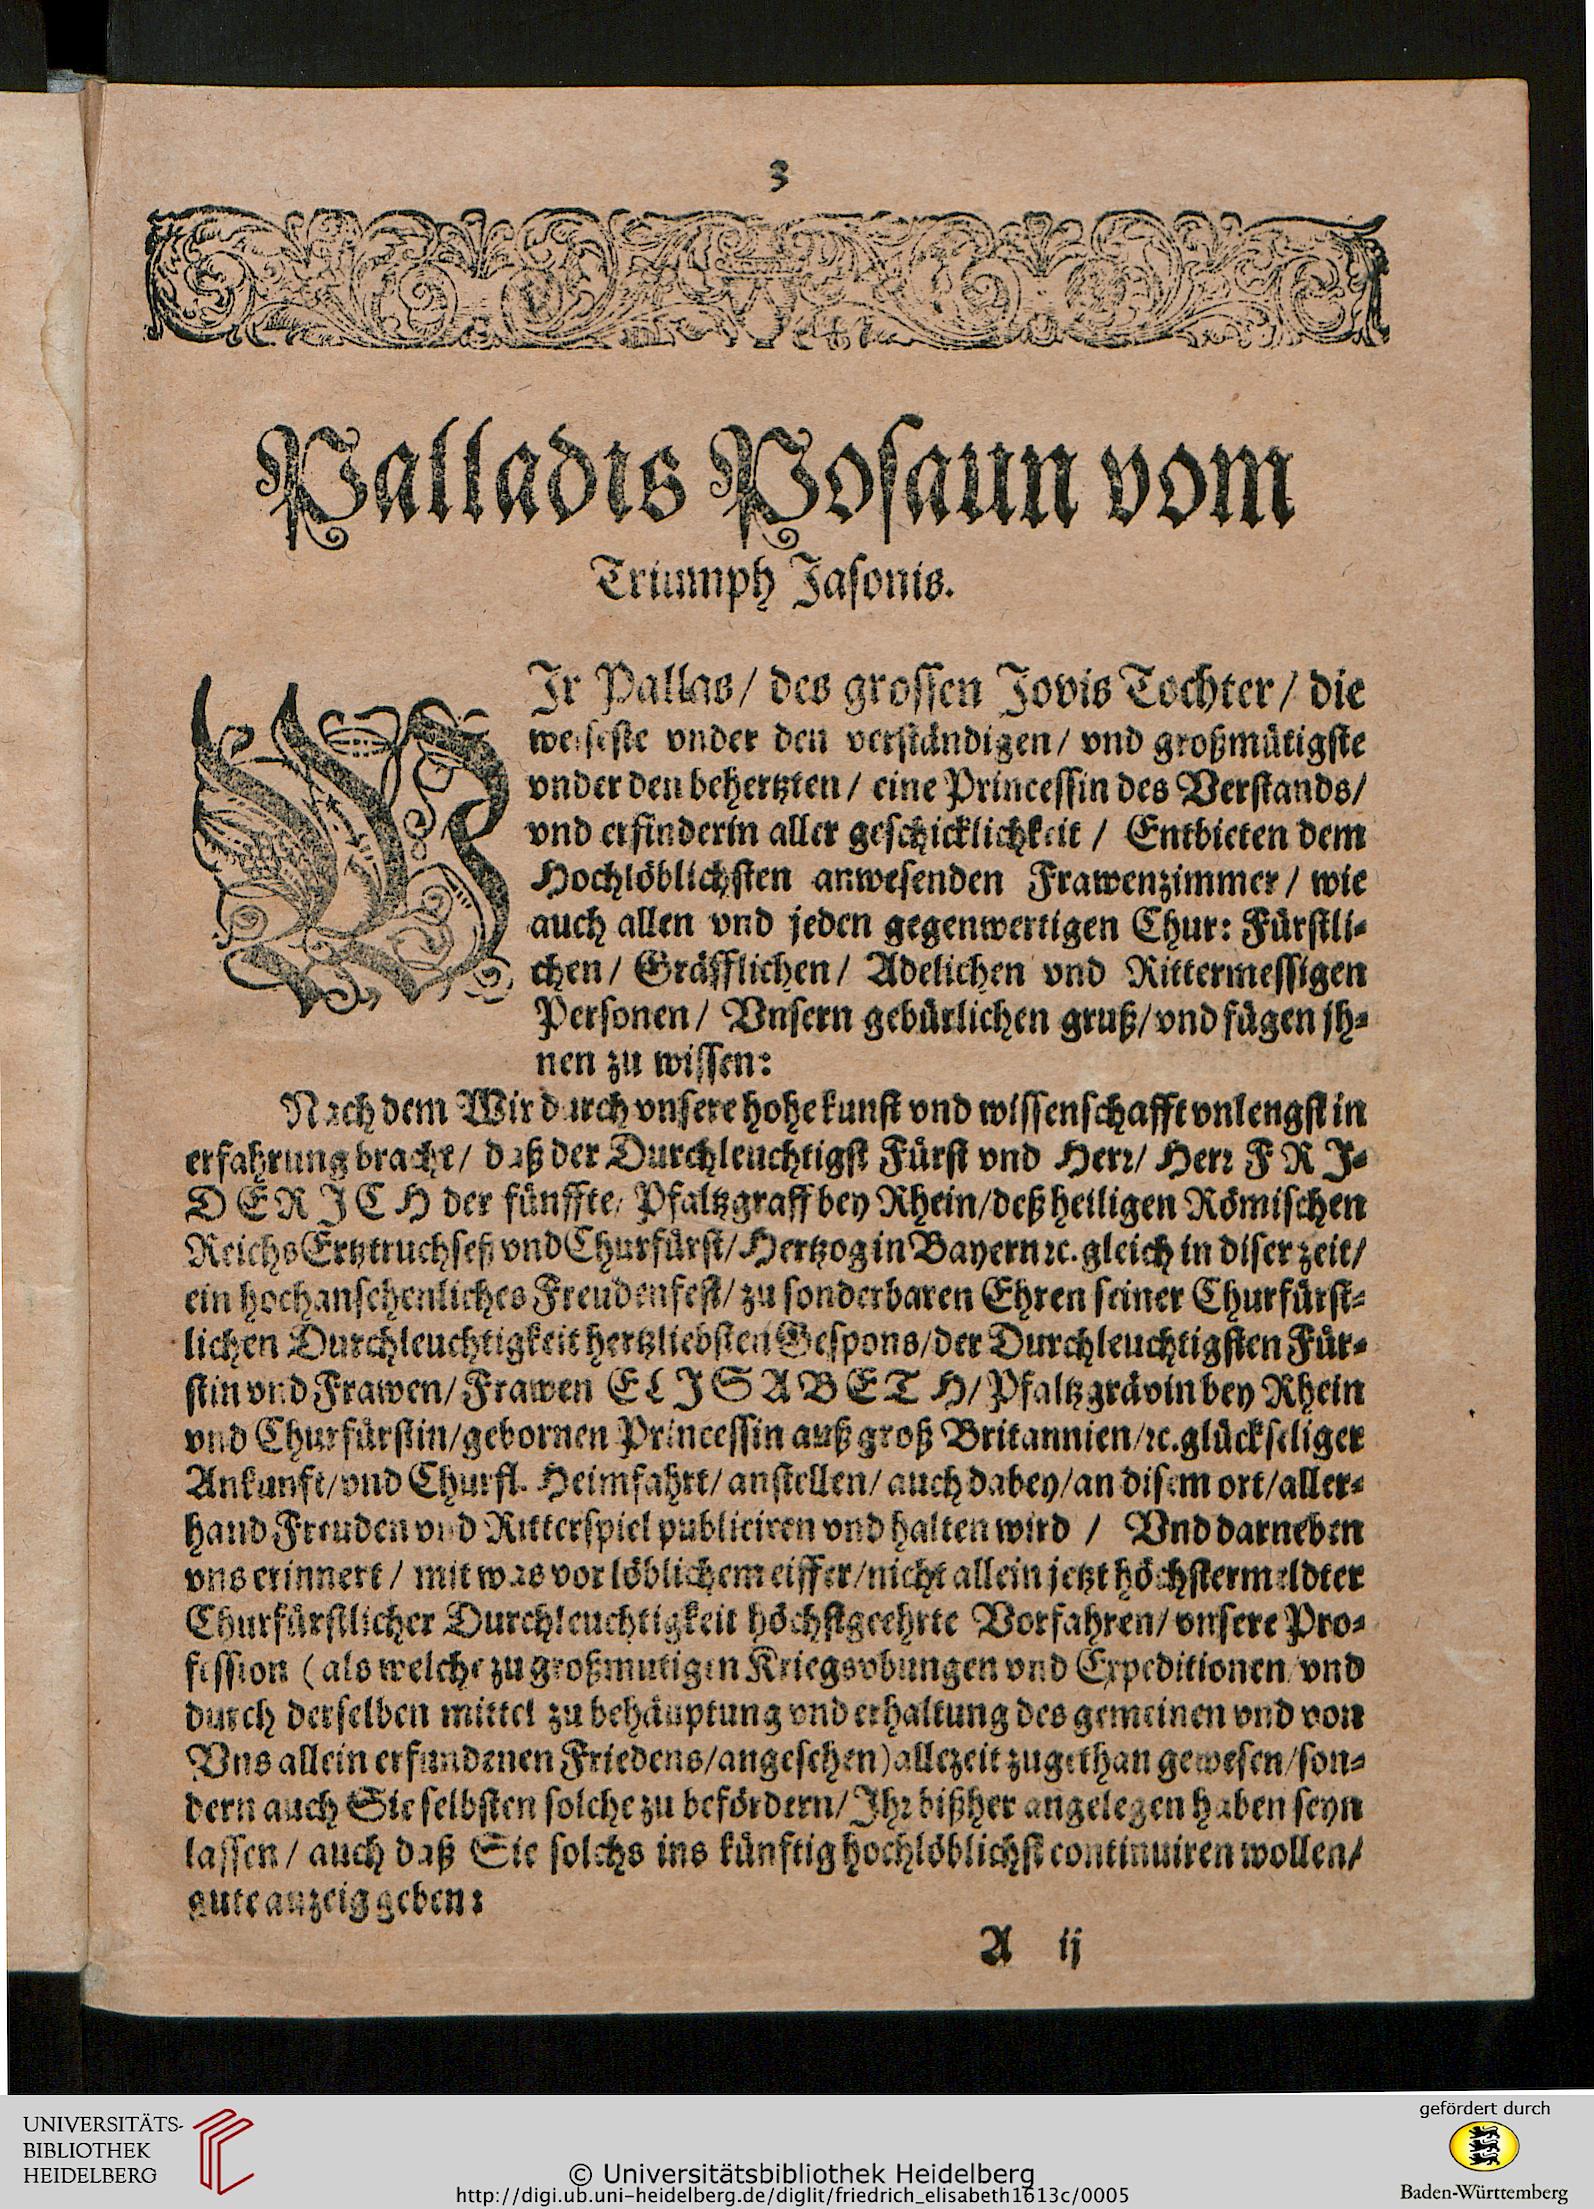 3
Palladis Posaun vom
Triumph Jasonis.
WIr Pallas/ des grossen Jovis Tochter/ die
weiseste vnder den verständigen/ vnd großmütigste
vnder den behertzten/ eine Princessin des Verstands/
vnd erfinderin aller geschicklichkeit / Entbieten dem
Hochlöblichsten anwesenden Frawenzimmer/ wie
auch allen vnd jeden gegenwertigen Chur: Fürstli-
chen/ Gräfflichen/ Adelichen vnd Rittermessigen
Personen/ Vnsern gebürlichen gruß/ vnd fügen jh-
nen zu wissen:
Nach dem Wir durch vnsere hohe kunst vnd wissenschafft vnlengst in
erfahrung bracht/ daß der Durchleuchtigst Fürst vnd Herr/ Herr FRJ-
DERJCH der fünffte/ Pfaltzgraff bey Rhein/ deß heiligen Römischen
Reichs Ertztruchseß vnd Churfürst/ Hertzog in Bayern ꝛc. gleich in diser zeit/
ein hochansehenliches Freudenfest/ zu sonderbaren Ehren seiner Churfürst-
lichen Durchleuchtigkeit hertzliebsten Gespons/ der Durchleuchtigsten Für-
stin vnd Frawen/ Frawen ELJSABETH/ Pfaltzgrävin bey Rhein
vnd Churfürstin/ gebornen Princessin auß groß Britannien/ ꝛc. glückseliger
Ankunft/ vnd Churfl. Heimfahrt/ anstellen/ auch dabey/ an disem ort/ aller-
hand Freuden vnd Ritterspiel publiciren vnd halten wird / Vnd darneben
vns erinnert / mit was vor löblichem eiffer/ nicht allein jetzt höchstermeldter
Churfürstlicher Durchleuchtigkeit höchstgeehrte Vorfahren/ vnsere Pro-
fession (als welche zu großmutigen Kriegsvbungen vnd Expeditionen/ vnd
durch derselben mittel zu behäuptung vnd erhaltung des gemeinen vnd von
Vns allein erfundenen Friedens/ angesehen) allezeit zugethan gewesen/ son-
dern auch Sie selbsten solche zu befördern/ Jhr bißher angelegen haben seyn
lassen / auch daß Sie solchs ins künftig hochlöblichst continuiren wollen/
gute anzeig geben:
A ij
UNIVERSITÄTS-
BIBLIOTHEK
HEIDELBERG
© Universitätsbibliothek Heidelberg
http://digi.ub.uni-heidelberg.de/diglit/friedrich_elisabeth1613c/0005
gefördert durch
Baden-Württemberg